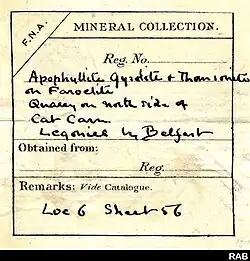 F.N.A.
MINERAL COLLECTION.
Reg. No.
Apophyllite Gyrolite & Thomsonite
on Faroelite
Quarry on north side of
Cat Carn
Legoniel by Belfast
Obtained from:
Reg.
Remarks: Vide Catalogue.
Loc 6 Sheet 56
RAB